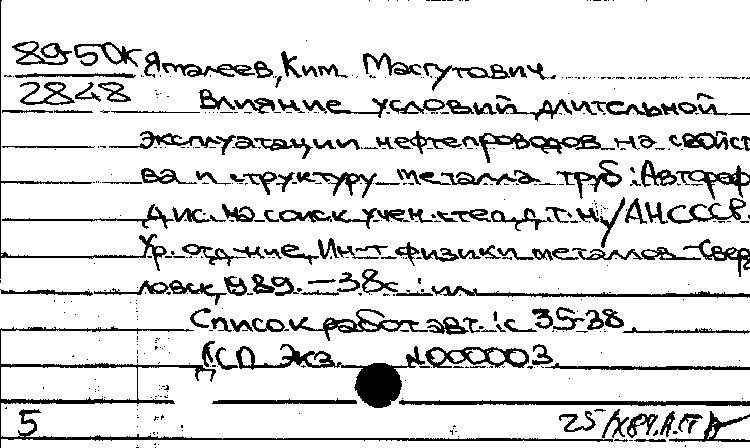 89-50К Ямалеев, Ким Масгутович.
2848 Влияние условий длительной
эксплуатации нефтепроводов на свойст
ва и структуру металла труб: Автореф.
Дис. на соиск. учен. степ. д.т.н. / АН СССР.
Ур. отд-ние, Ин-т физики металлов. - Сверд
ловск, 1989. — 38с. : ил.
Список работ авт.: с 35-38.
ДСП. Экз. N000003.
5 25/IX89.